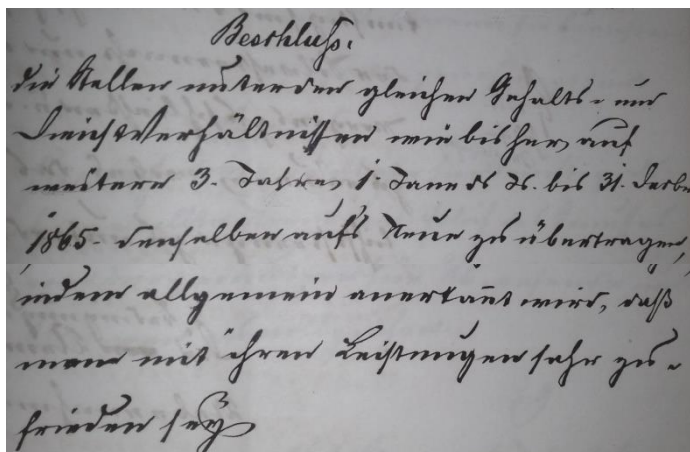 Beschluß.
die Stellen unter den gleichen Gehalts- und
Dienstverhältnissen wie bisher, auf
weitere 3. Jahre, 1. Jann ds Js. bis 31. Dezbr
1865. denselben aufs Neue zu übertragen,
indem allgemein anerkannt wird, daß
man mit ihren Leistungen sehr zu-
frieden sey